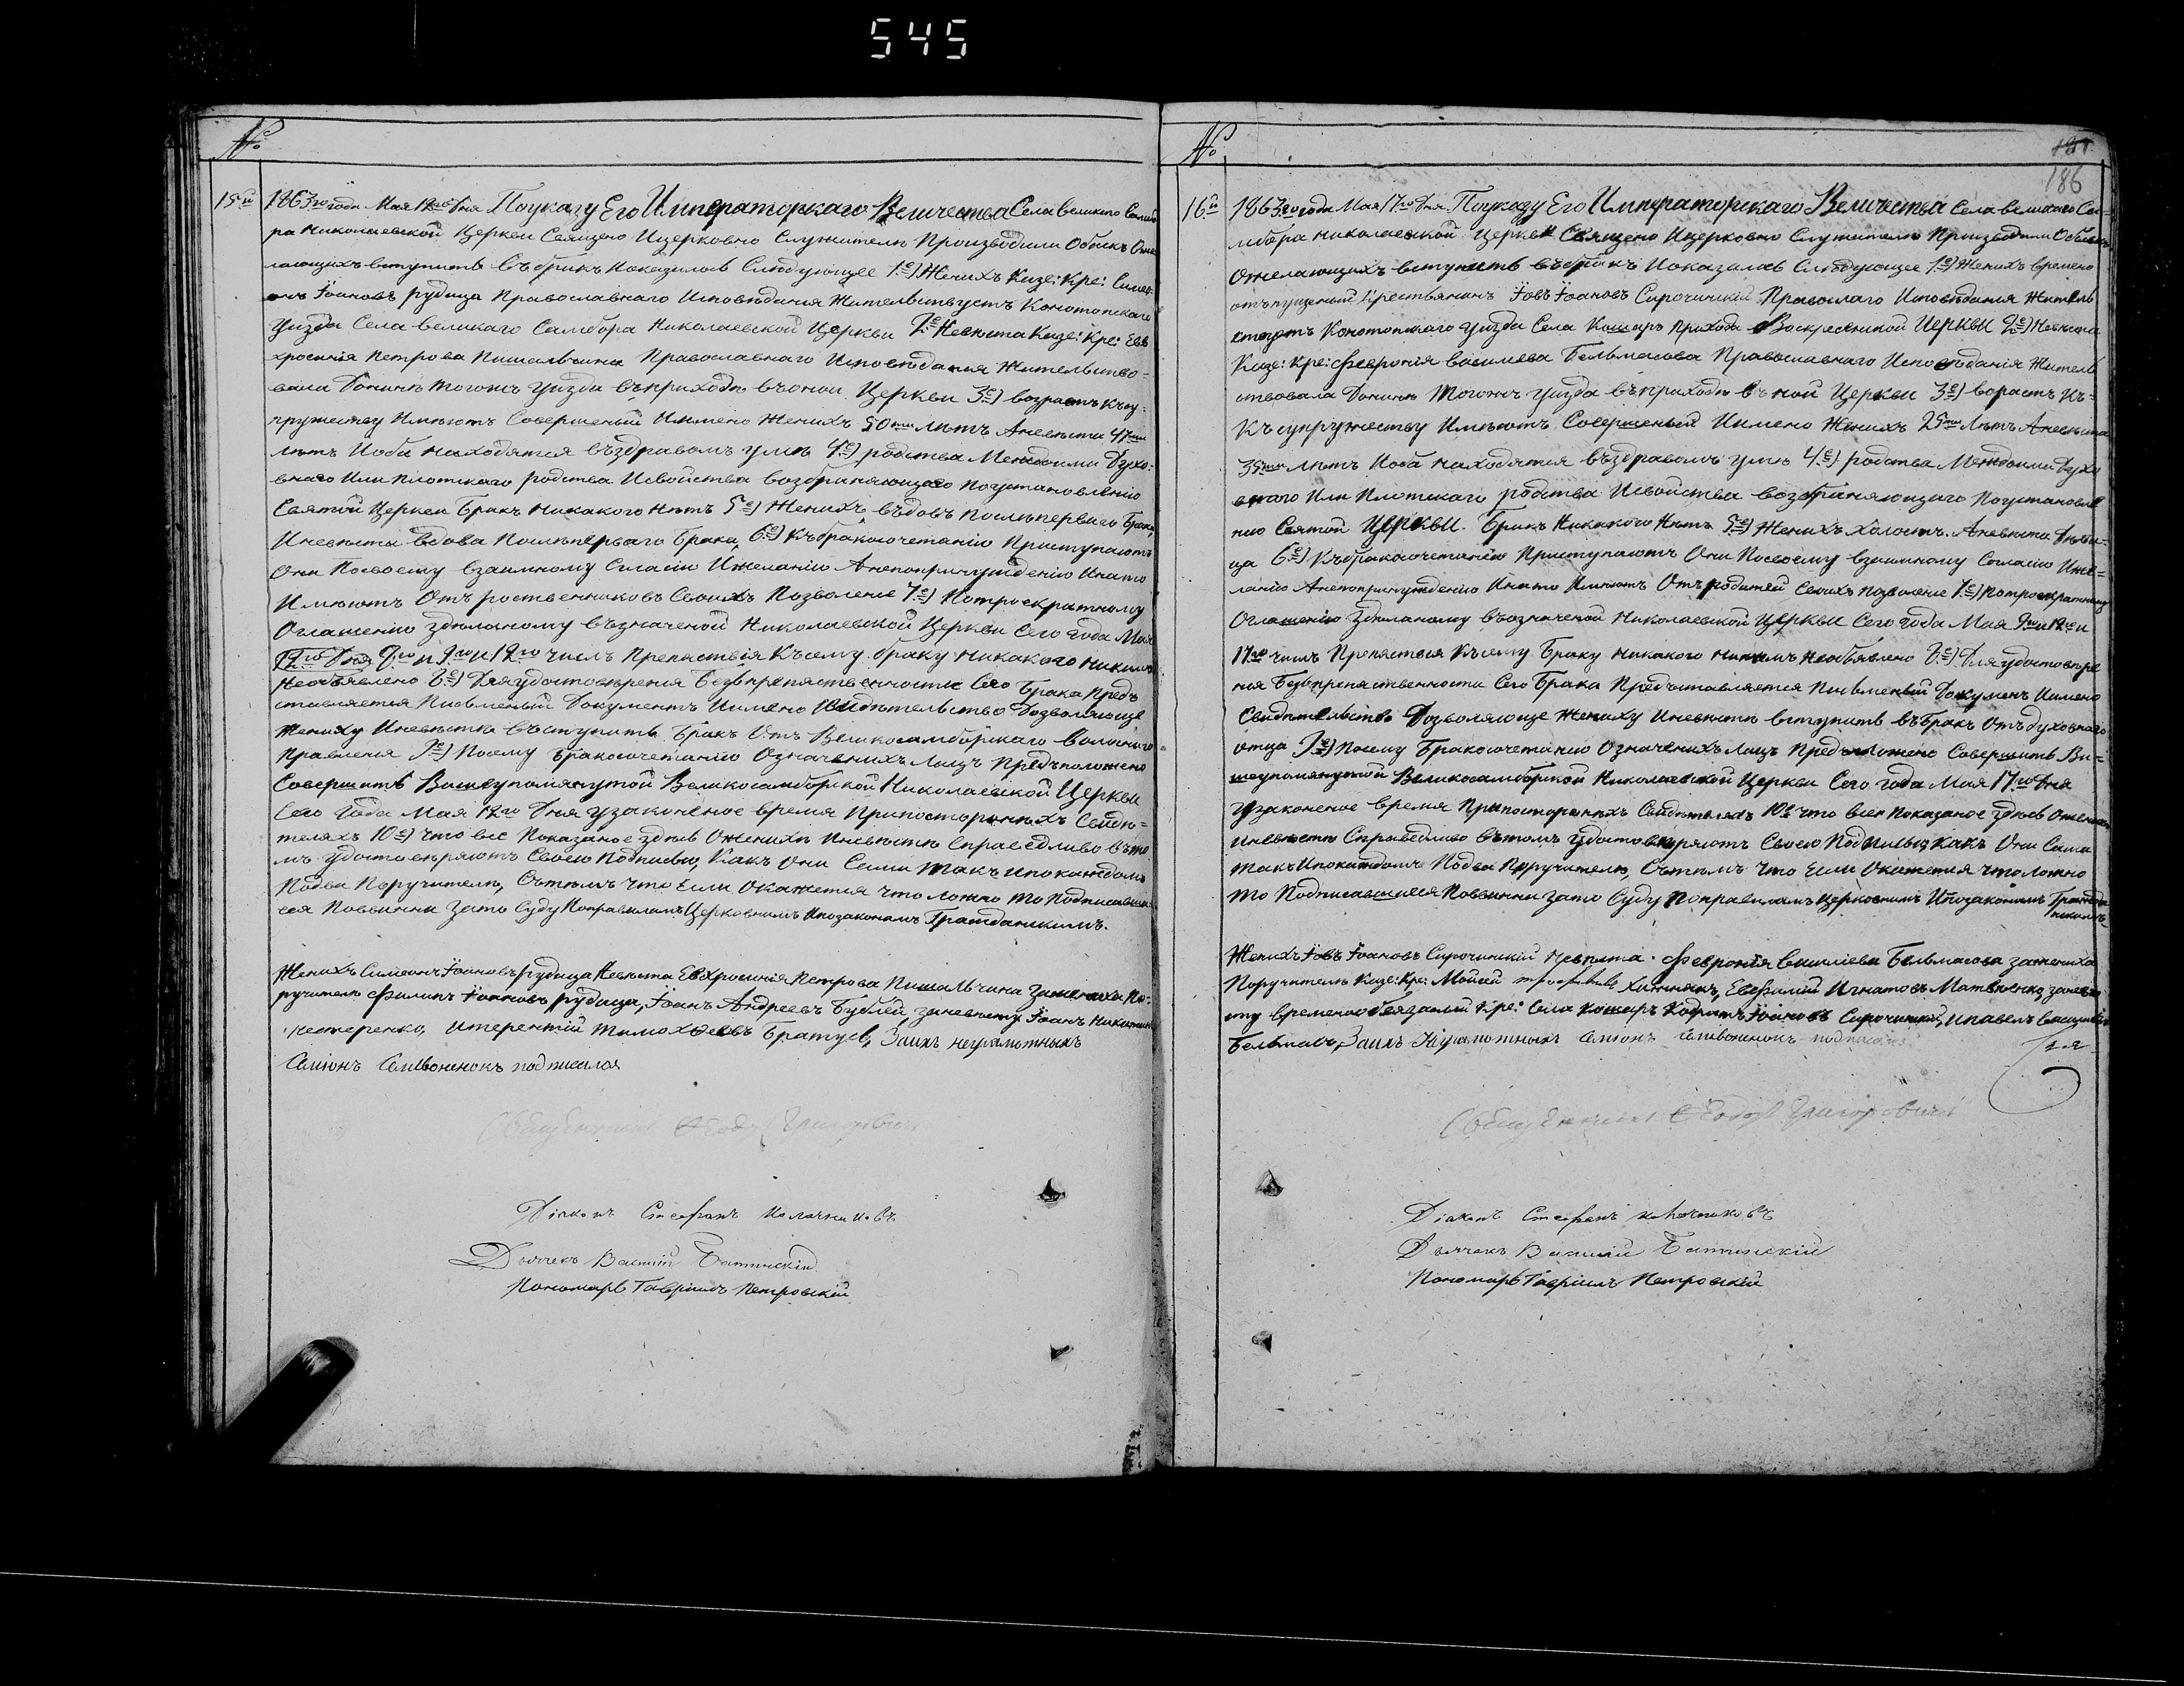 545
№
15й 1863го года Мая 12го дня Поуказу Его Императорскаго Величества Села великого Самбо
ра Николаевской Церкви Священо Ицерковно Служителе Производили Обыскъ Оже
лающихъ вступить въ бракъ Ноказалось Слѣдующее 1е) Женихъ Казе: Кре: Симе
онъ Іоановъ рудица Православнаго Исповѣданія Жительствуетъ Конотопскаго
уизда Села великаго Самбора Николаевской Церкви 2е Невѣста Казе: Кре: Евѳ
хросинія Петрова Пишальчина Православнаго Исповѣданія Жительство=
вала Донинѣ тогожъ уизда въприходѣ въоной Церкви 3е) возрастъ късу=
пружеству Имѣютъ Совершеный Иимено Женихъ 50ти лѣтъ Аневѣста 47ми
лѣтъ Иоба находятся въздравомъ умѣ 4е) родства Междоими Духо:
внаго Или плотскаго родства Исвойства возбраняющаго Поустановленію
Святой Церкви Бракъ никакого нѣтъ 5е) Женихъ вѣдовъ послѣпервого Брака,
Иневѣста вдова Послѣперваго Брака, 6е) Къбракосочетанію Приступаютъ
Они Посвоему взаимному Сгласію Ижеланію Анепопринужденію Инато
Имѣютъ Отъ роственниковъ Своихъ Позволеніе 7е) Потроекратному
Оглашенію зделаному въозначеной Николаевской Церкви Сего года Мая
и 9го и 12го числъ Препяствія Къему браку никакого никимъ
Необявлено 8е) Дляудостовѣренія Безъпрепяственности Сего Брака Предъ
ставляется Письменый Документъ Иимено Свидѣтельство Дозволяюще
Жениху Иневѣстѣ въступить Бракъ Отъ Великосамборскаго волоснаго
Правленія 9е) Посему Бракосочетанію Означенихъ Лицъ Предъположено
Совершить Вишеупомянутой Великосамборской Николаевской Церкви
Сего года Мая 12го Дня узаконеное время Припосторонихъ Свидѣ=
теляхъ 10е) что все Показаное здѣсь Оженихѣ Иневѣстѣ Справедливо вѣто
мъ удостовѣряютъ Своею Подписью, Какъ Они Сами такъ Ипокаждомъ
Подва Поручителѣ, Сътѣмъ что Если Окажется что ложно то Подписавши
еся Повинни Зато Суду Поправиламъ Церковнимъ Ипозаконамъ Гражданскимъ.
Женихъ Симеонъ Іоановъ рудица Невѣста Евхросинія Петрова Пишальчина Зажениха По=
ручителѣ Филипъ Іоановъ рудица, Іоанъ Андреевъ Бублей, заневѣсту Іоанъ Никитинъ
нестеренко, Итерентій тимохѣевъ Братусь, Заихъ неграмотныхъ
Самюнъ Самвоненокъ подписался
Діаконъ Стефанъ
Дьячекъ Василій
Пономарь Гавріилъ Петровскій
№
186
16й 1863го года Мая 17го Дня Поуказу Его Императорскаго Величества Села великаго Са=
мбора Николаевской Церкви Священо Ицерковно Служителе Производили Обыскъ
Ожелающихъ вступить въбракъ Ноказалось Слѣдующее 1е) Женихъ времено
отъпущеный Крестьянинъ Іовъ Іоановъ Сирочинскій Правослаго Исповѣданія Житель
ствуетъ Конотопскаго уизда Села Кошаръ Прихода Воскресенской Церкви 2е) Невѣста
Казе: Кре: Февронія василева Бельмасова Православнаго Исповѣданія Житель
ствовала Донинѣ Тогожъ уизда въприходѣ въ ной Церкви 3е) ворастъ къ=
Къ супружеству Имѣютъ Совершеный Иимено Женихъ 25ти лѣтъ Аневѣста
35ти лѣтъ Иоба находятся въздравомъ умѣ 4е) родства Междоими Духо
внаго Или Плотскаго родства Исвойства возбраняющаго Поустановле
нію Святой Церкви. Бракъ Никакого Нѣтъ 5е) Женихъ холостъ. Аневѣста Дѣви=
ца 6е) Къбракосочетанію Приступаютъ Они Посвоему взаимному Согласію Иже=
ланію Анепопринужденію Инато Имѣютъ Отъродителей Своихъ Позволеніе 7е) Потроекратному
Оглашенію Зделаному въозначеной Николаевской Церкви Сего года Мая 9го и 12го и
17го числъ Препяствія Къему Браку никакого никимъ Необявлено 8е) Дляудостовѣре
нія Безъпрепяственности Сего Брака Предъставляется Письменый Докуменъ Иимено
Свидѣтельство Дозволяюще Жениху Иневѣстѣ вступить въБракъ Отъдуховнаго
отца 9е) Посему Бракосочетанію Означенихъ Лицъ Предъположено Совершить Ви=
шеупомянутой Великосамборской Николаевской Церкви Сего года Мая 17го Дня
узаконеное время Припосторонихъ Свидѣтеляхъ 10е что все Показаное здѣсь Оженихѣ
Иневѣстѣ Справедливо вѣтомъ удостовѣряютъ Своею Подписью, Какъ Они Сами
такъ Ипокаждомъ Подва Поручителѣ, Сътѣмъ что Если Окажется что ложно
то Подписавшиеся Повинни Зато Суду Поправиламъ Церковнимъ Ипозаконамъ Гражда
нскимъ.
Женихъ Іовъ Іоановъ Сирочинскій Невѣста. Февронія Василіева Бельмасова зажениха
Поручителѣ Казе: Кре: Мойсей Хижнякъ, Евфимій Игнатовъ Матвѣенко, заневѣ
сту временообязаный Кре: Села Кошаръ Кодратъ Іоановъ Сирочинскій, Ипавелъ василіевъ
Бельмасъ, Заихъ Неграмотныхъ Самюнъ Самвоненокъ подписался
Діаконъ Стефанъ
Дьячекъ Василій
Пономарь Гавріилъ Петровскій